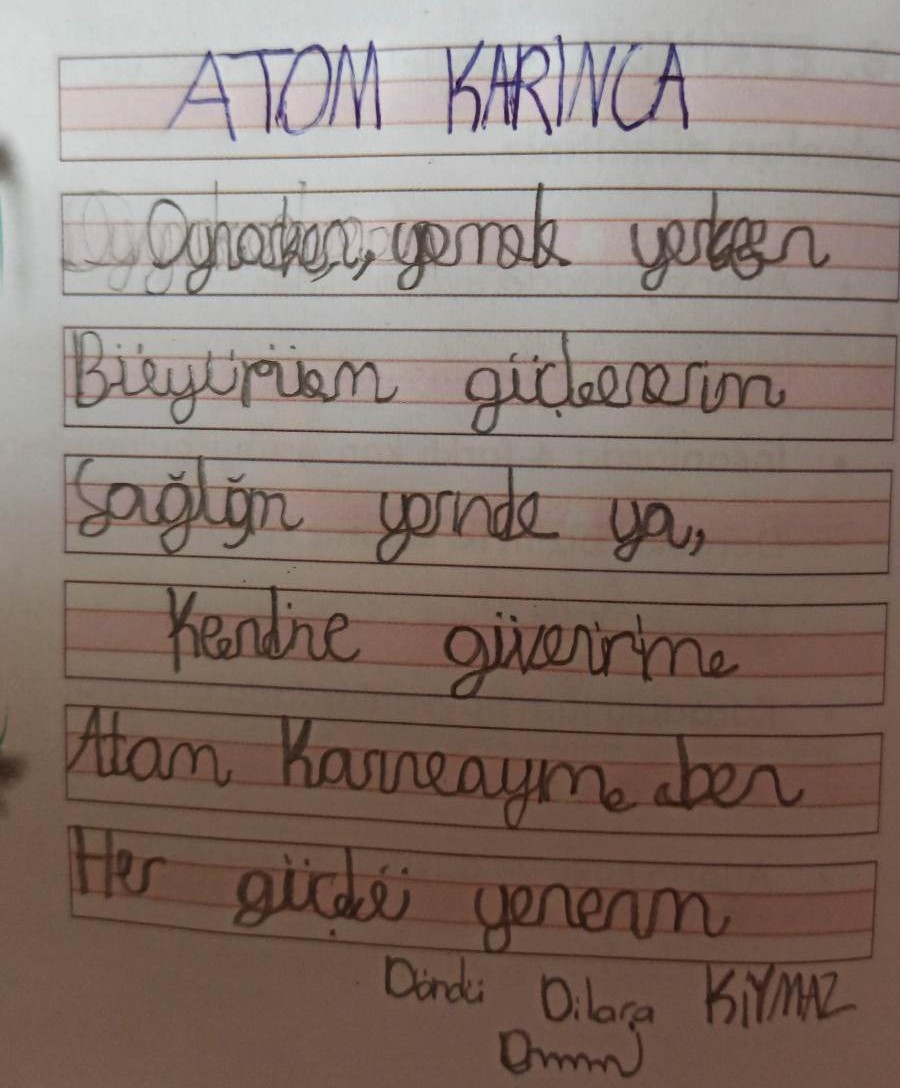 ATOM KARINCA
Oynarken, yemek yerken
Büyürüm güçlenirim
Sağlığın yerinde ya,
Kendine güvenirim
Atom Karıncayım ben
Her güçlüğü yenerim
Döndü Dilara KIYMAZ